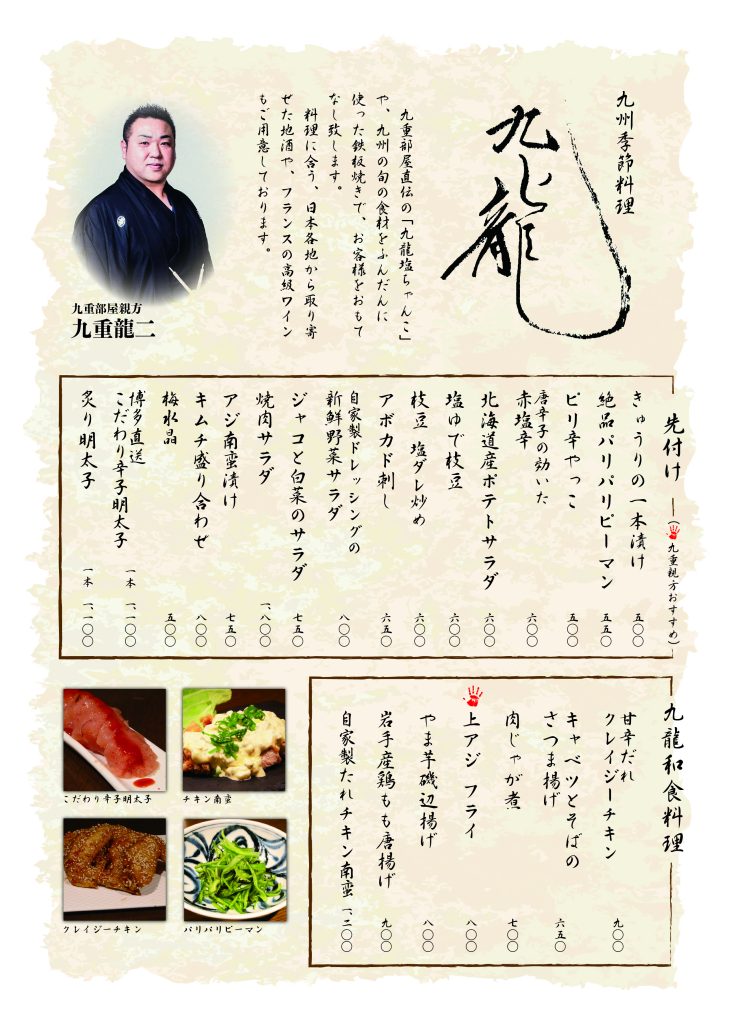 九州季節料理
九龍
九重部屋直伝の「九龍塩ちゃんこ」
や、九州の旬の食材をふんだんに
使った鉄板焼きで、お客様をおもて
なし致します。
料理に合う、日本各地から取り寄
せた地酒や、フランスの高級ワイン
もご用意しております。
九重部屋親方
九重龍二
先付け
(九重親方おすすめ)
きゅうりの一本漬け 五〇〇
絶品パリパリピーマン 五五〇
ピリ辛やっこ 五〇〇
唐辛子の効いた
赤塩辛 六〇〇
北海道産ポテトサラダ 六〇〇
塩ゆで枝豆 六〇〇
枝豆 塩ダレ炒め 六〇〇
アボカド刺し 六五〇
自家製ドレッシングの
新鮮野菜サラダ 八〇〇
ジャコと白菜のサラダ 七五〇
焼肉サラダ 一、八〇〇
アジ南蛮漬け 七五〇
キムチ盛り合わせ 八〇〇
梅水晶 五〇〇
博多直送
こだわり辛子明太子 一本 一、一〇〇
炙り明太子 一本 一、一〇〇
九龍和食料理
甘辛だれ
クレイジーチキン 九〇〇
キャベツとそばの
さつま揚げ 六五〇
肉じゃが煮 七〇〇
上アジ フライ 八〇〇
やま芋磯辺揚げ 八〇〇
岩手産鶏もも唐揚げ 九〇〇
自家製たれチキン南蛮 一、二〇〇
こだわり辛子明太子
チキン南蛮
クレイジーチキン
パリパリピーマン